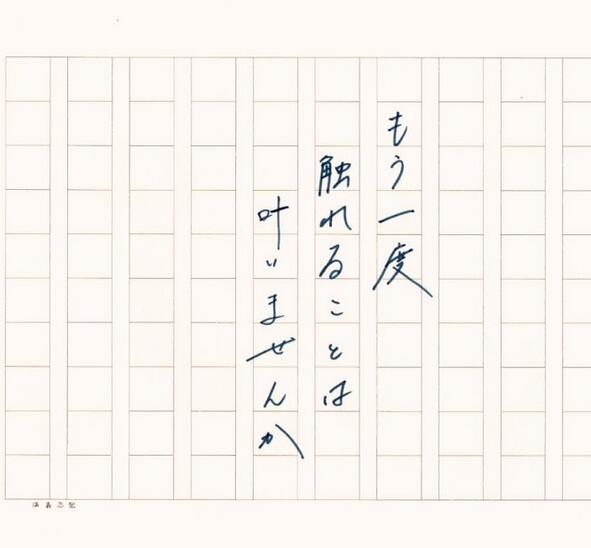 もう一度
触れることは
叶いませんか